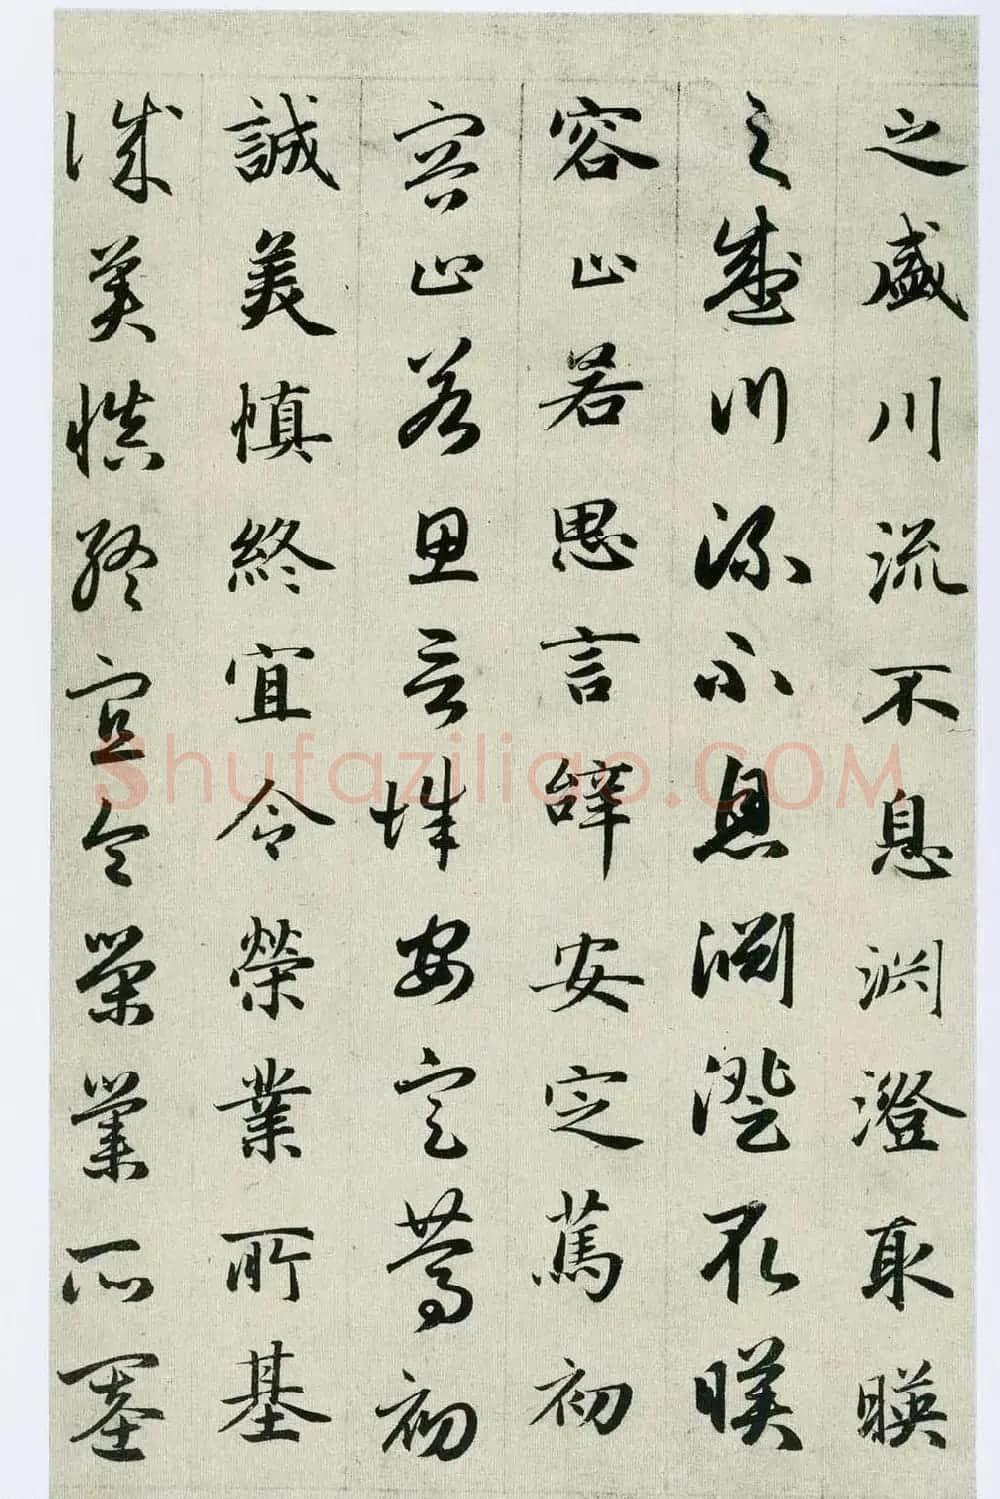 之盛川流不息淵澄取暎
之盛川流不息淵澄取暎
容止若思言辝安定篤初
容止若思言辝安定篤初
誠美慎終宜令榮業所基
誠美慎終宜令榮業所基
Shufaziliao.COM